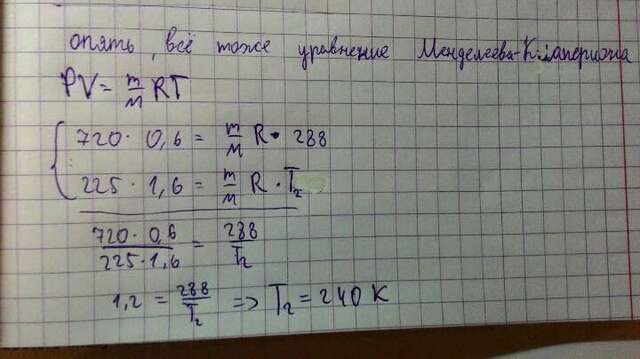 опять, всё тоже уравнение Менделеева-Клапейрона
PV = m/M RT
720 · 0,6 = m/M R · 288
225 · 1,6 = m/M R · T₂
720 · 0,6 / 225 · 1,6 = 288 / T₂
1,2 = 288 / T₂ => T₂ = 240 K